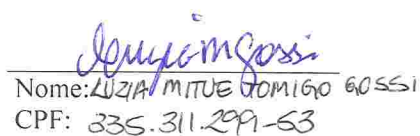 Nome: LUZIA MITUE TOMIGO GOSSI
CPF: 335.311.299-53